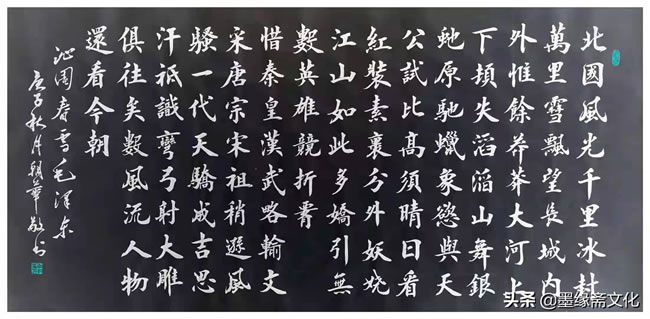 北國風光千里冰封
萬里雪飄望長城內
外惟餘莽莽大河上
下頓失滔滔山舞銀
虵原馳蠟象慾與天
公試比高須晴日看
紅裝素裹分外妖嬈
江山如此多嬌引無
數英雄競折腰
惜秦皇漢武略輸文
采唐宗宋祖稍遜風
騷一代天驕成吉思
汗祇識彎弓射大雕
俱往矣數風流人物
還看今朝
沁園春雪毛澤东
庚子秋月朝華敬书
头条 @墨缘斋文化